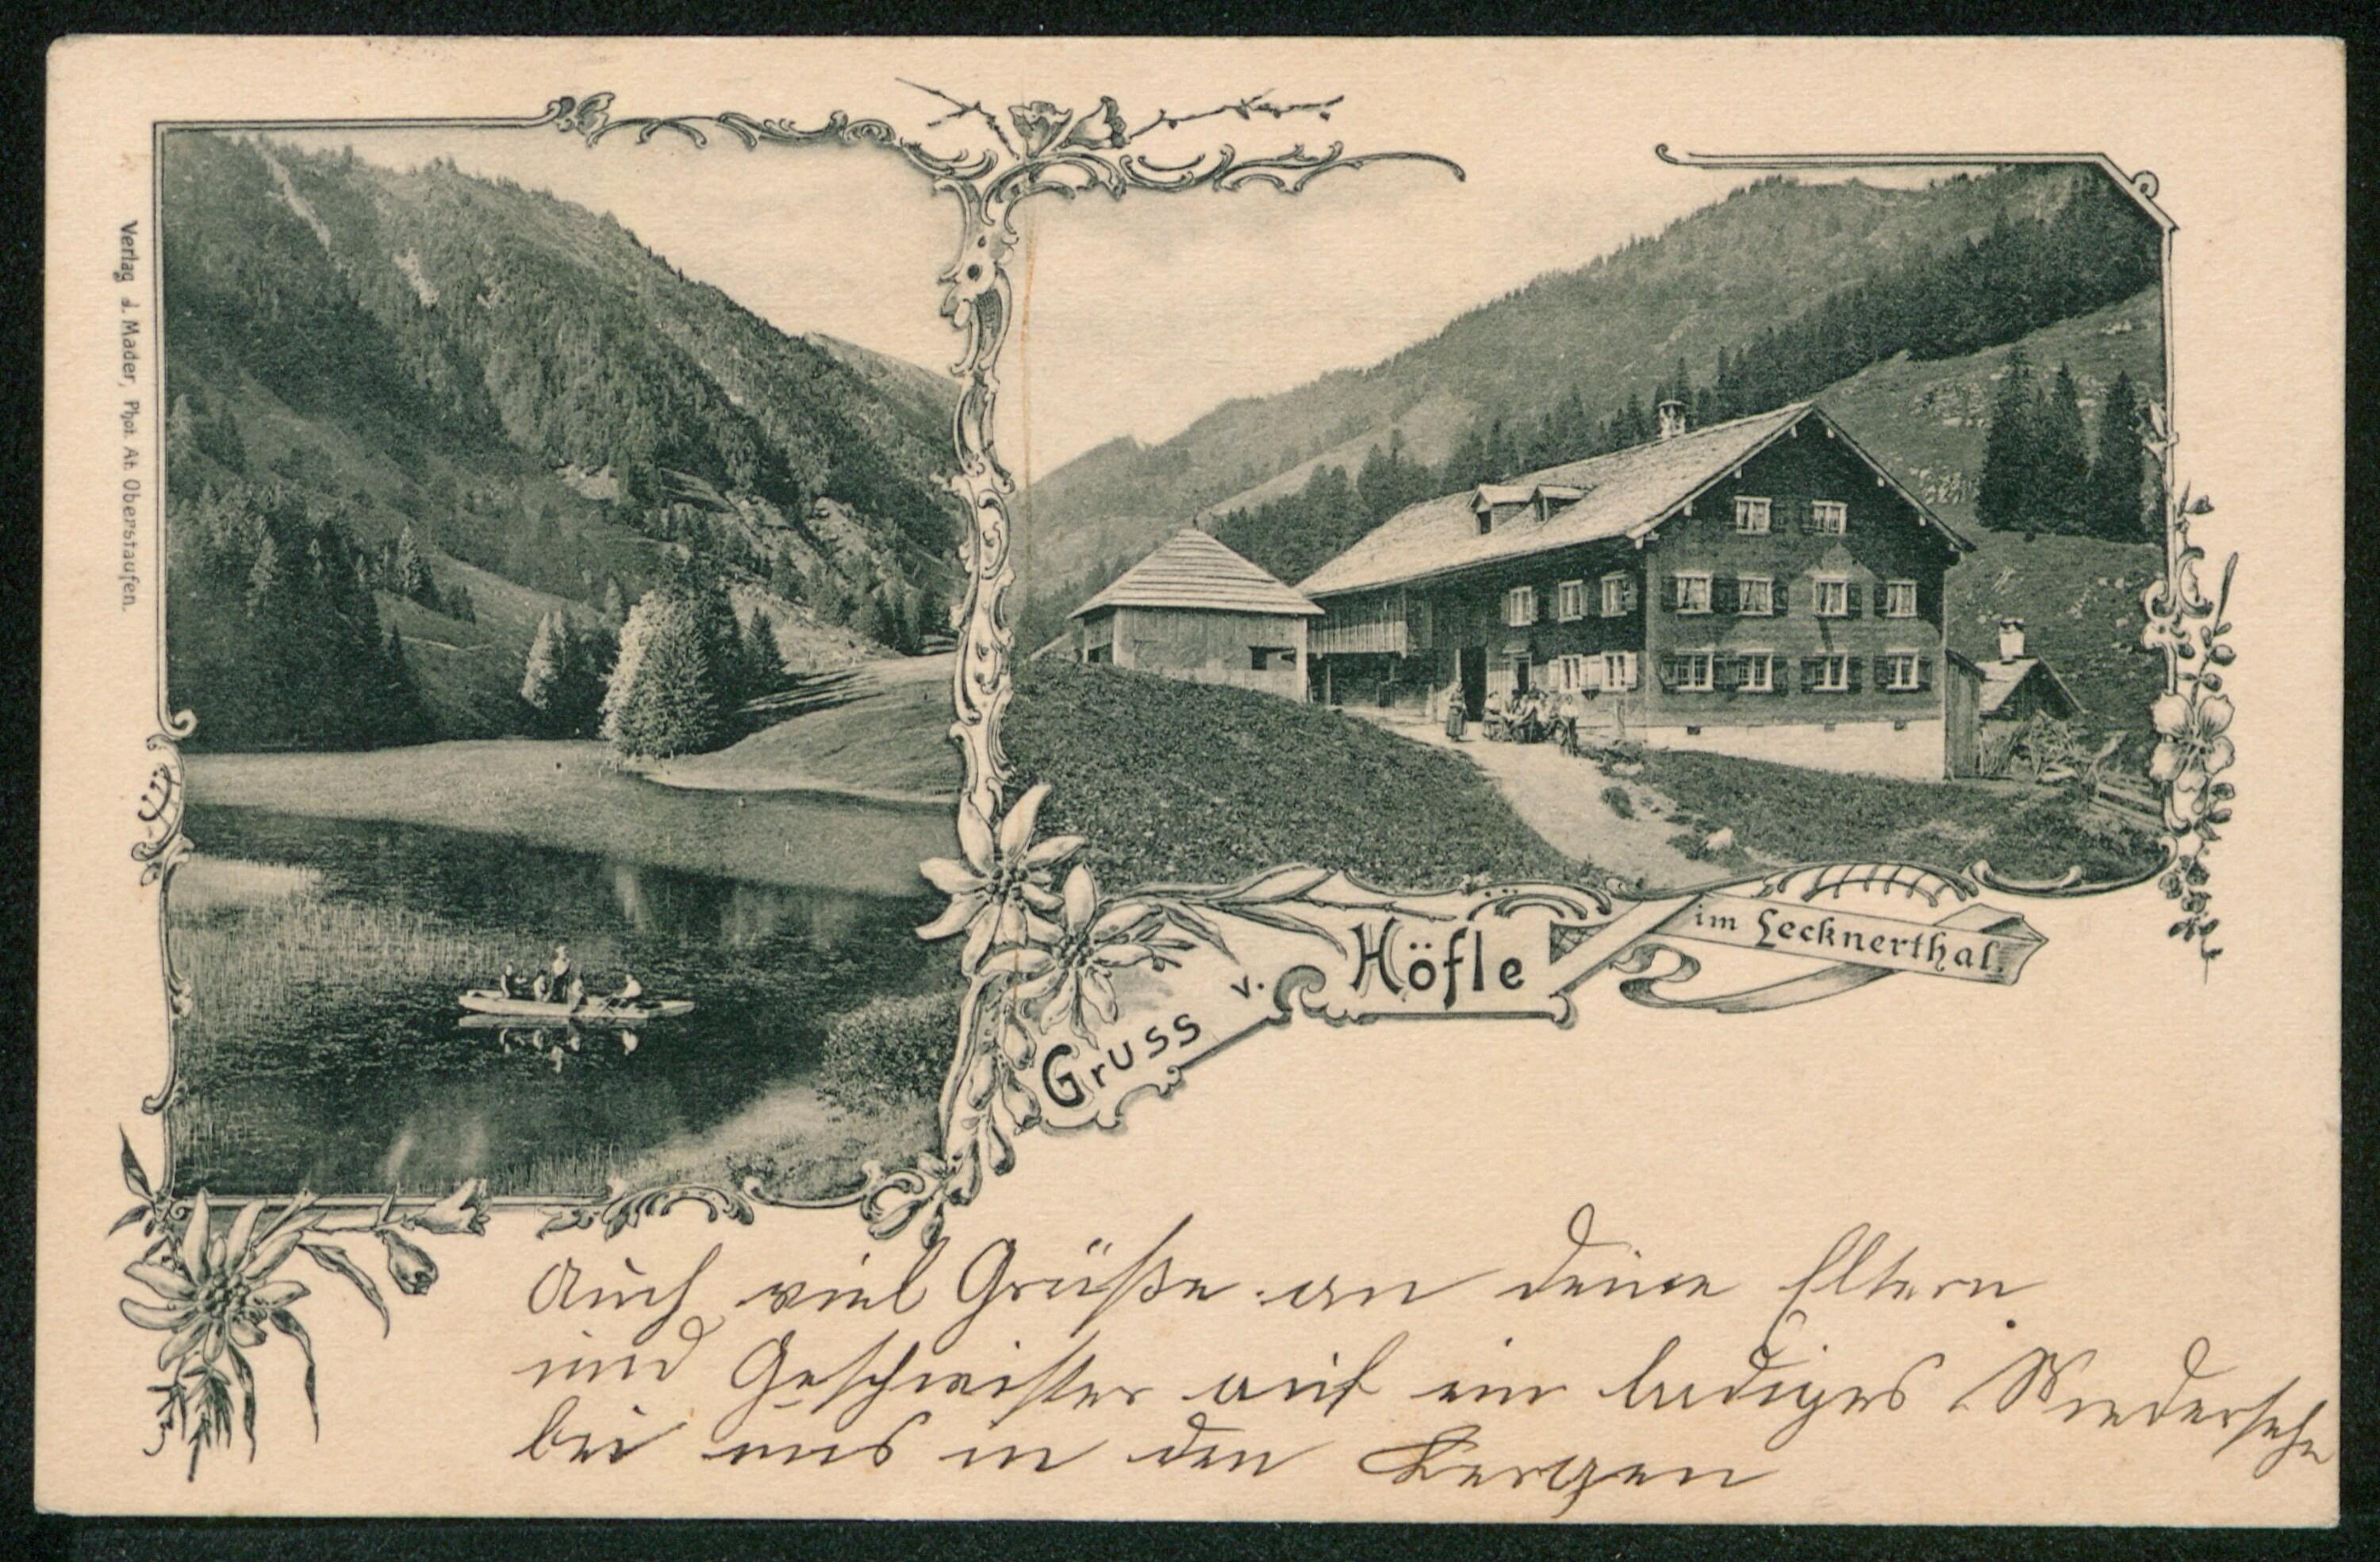 Verlag d. Mader, Phot. At. Oberstaufen.
Gruss v. Höfle
im Lecknerthal.
Auch viel Grüße an deine Eltern
und Geschwister auf ein baldiges Wiedersehn
bei uns in den Bergen